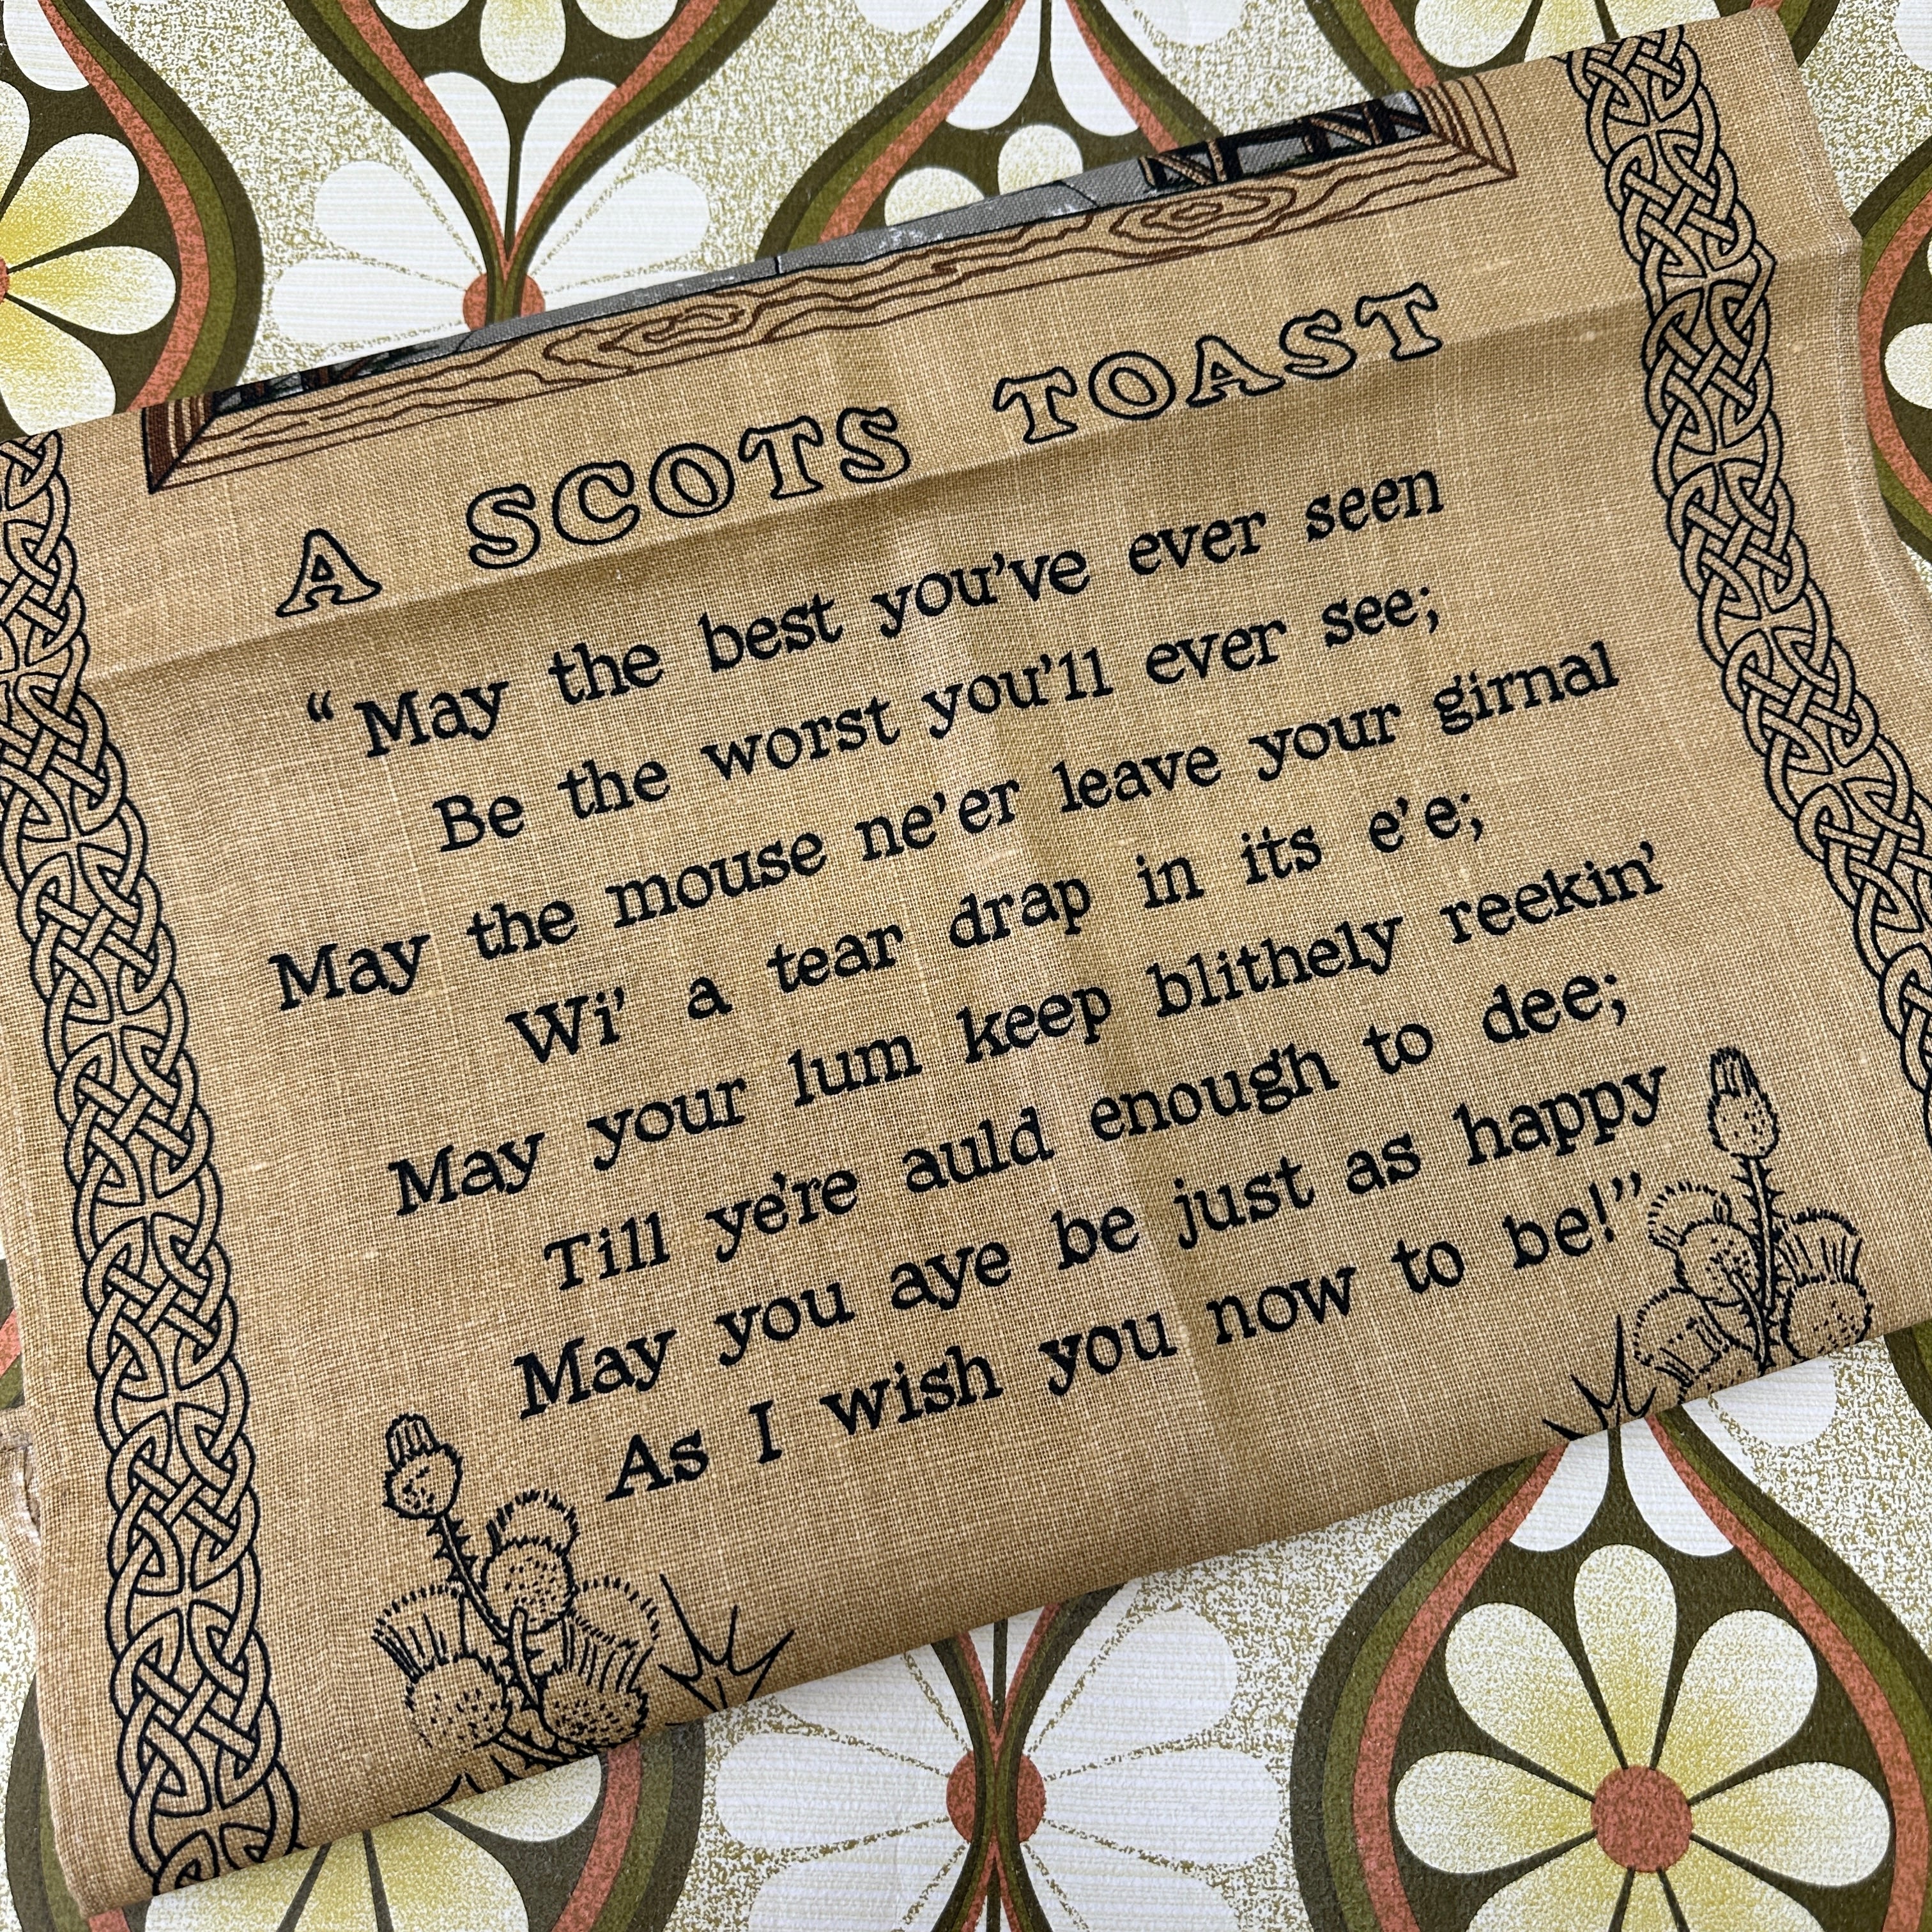 A SCOTS TOAST
“May the best you’ve ever seen
Be the worst you’ll ever see;
May the mouse ne’er leave your girnal
Wi’ a tear drap in its e’e;
May your lum keep blithely reekin’
Till ye’re auld enough to dee;
May you aye be just as happy
As I wish you now to be!”